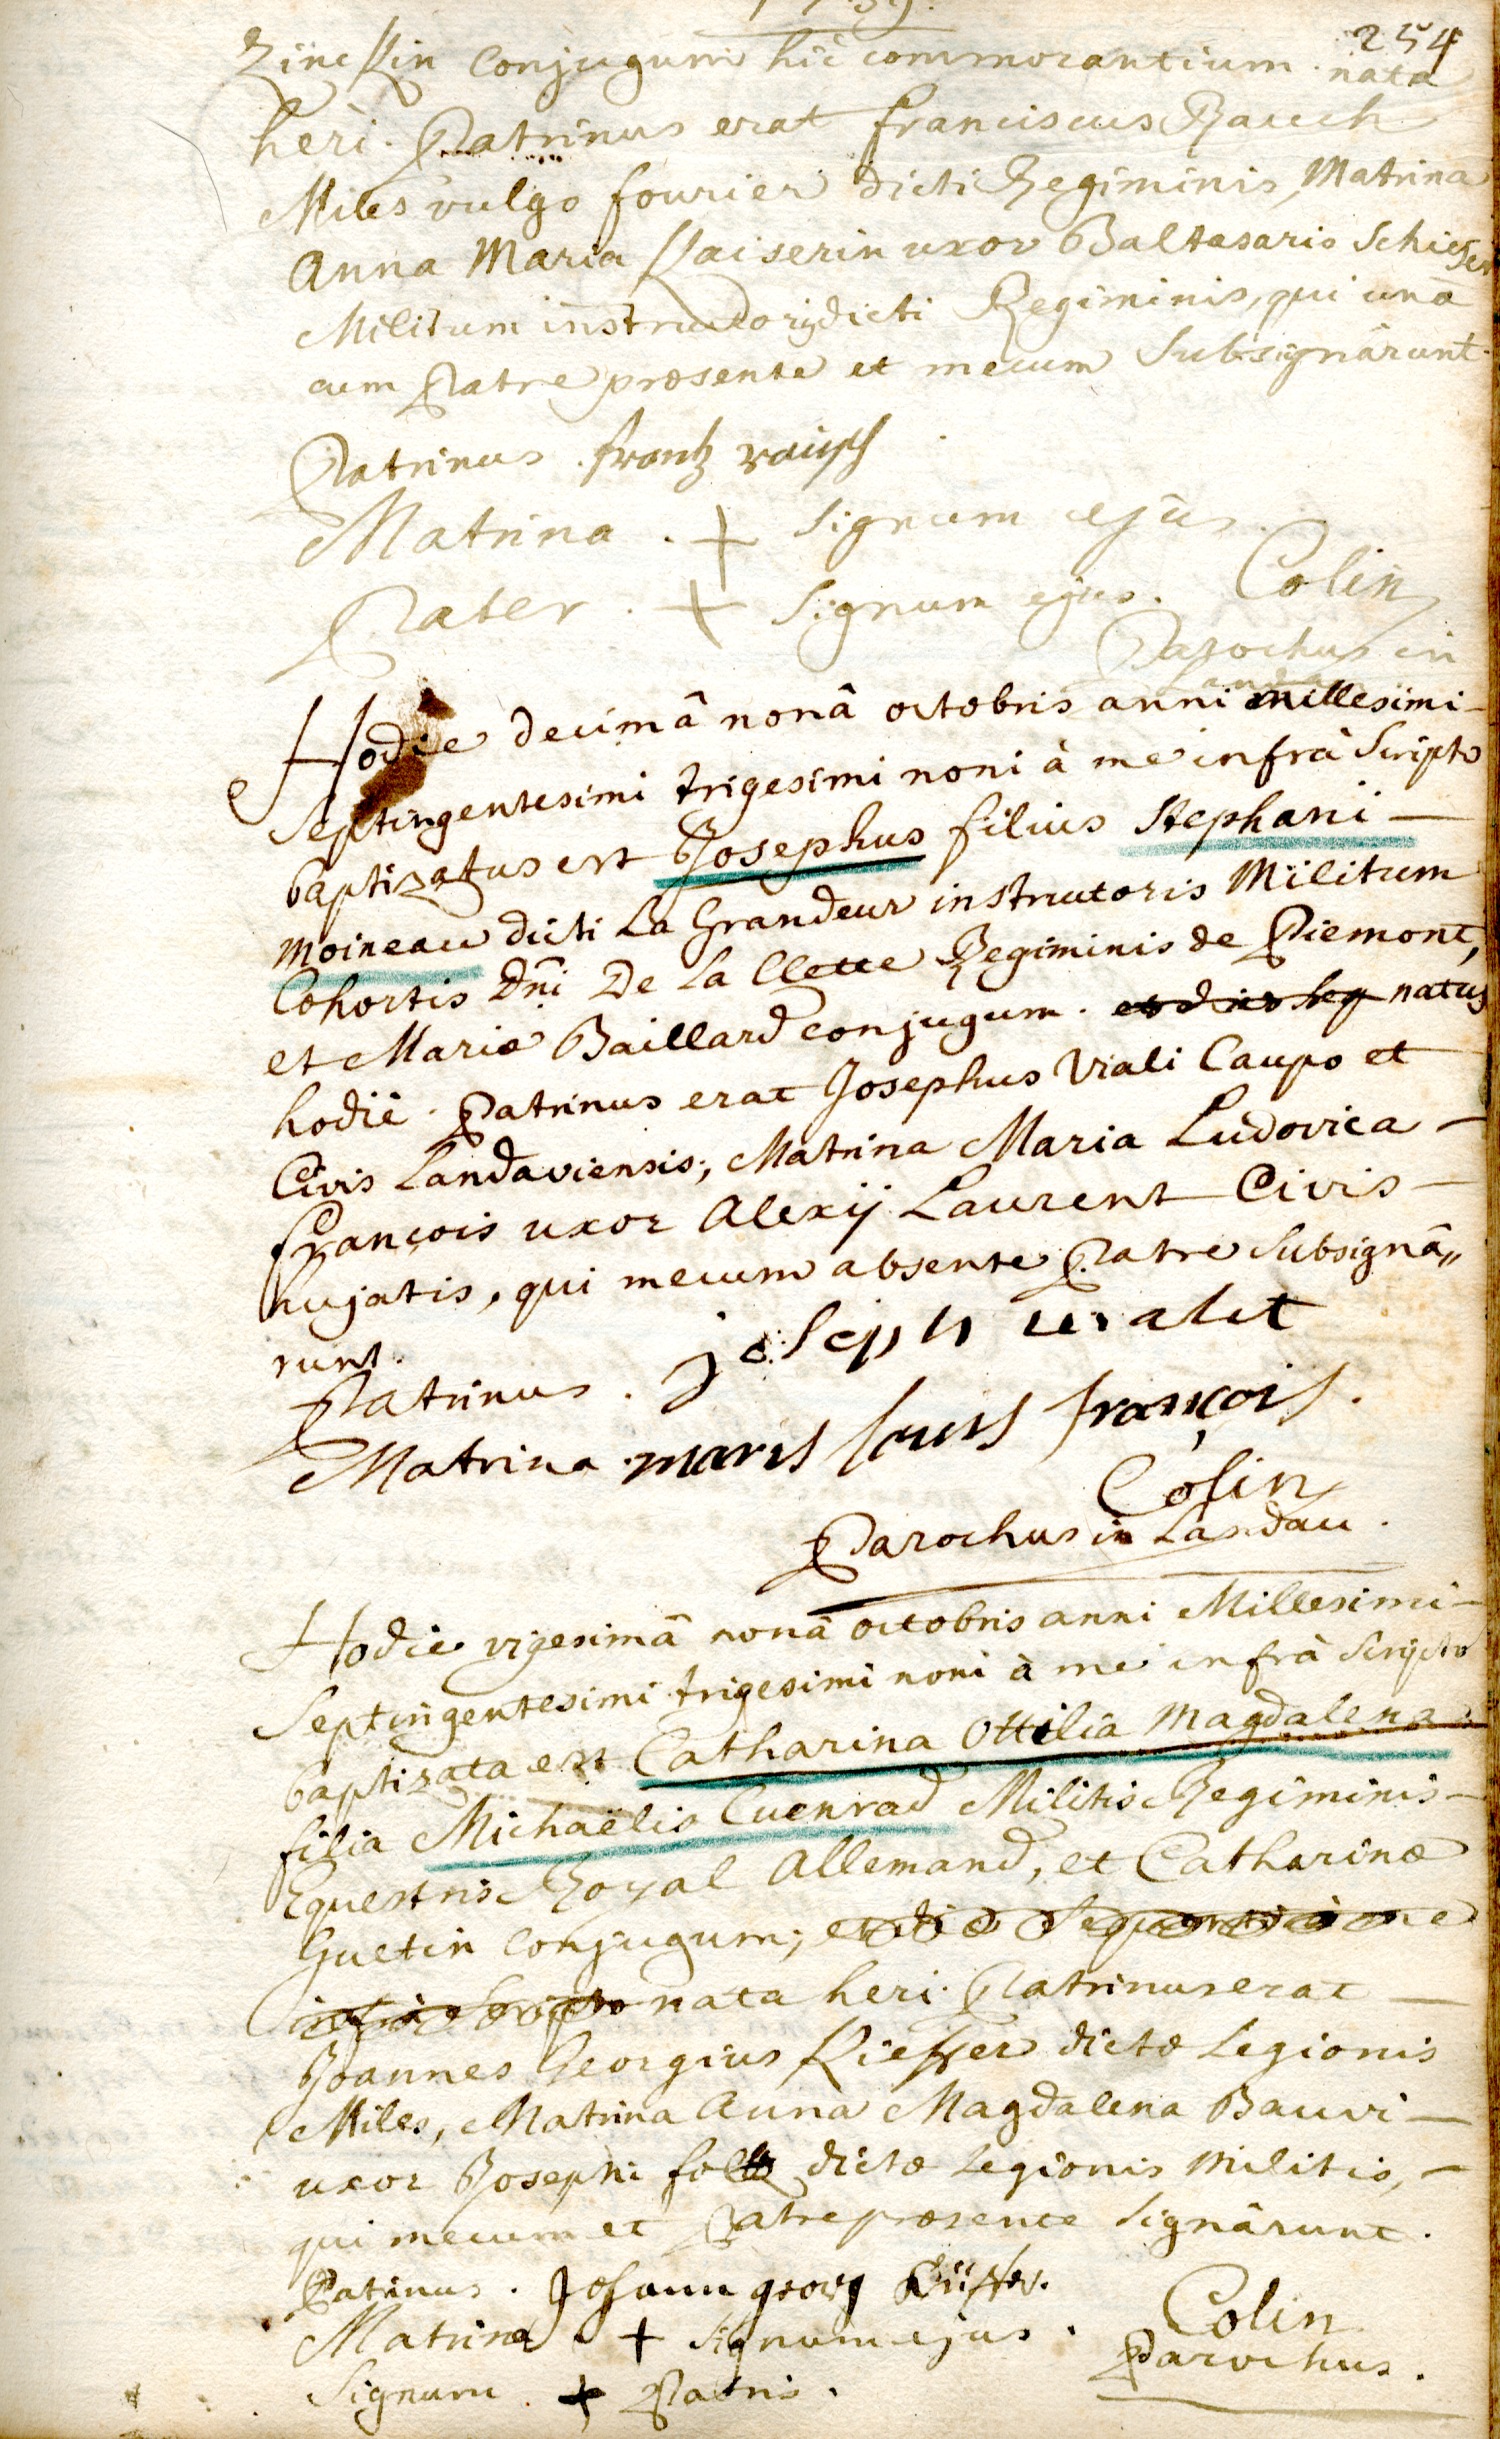 1739.
254
Zinckin Conjugum hic commorantium nata
heri. Patrinus erat franciscus Rauch
Miles vulgo fourier dicti Regiminis, Matrina
Anna Maria Kaiserin uxor Baltasaris
Militum instructoris dicti Regiminis, qui unà
cum Patre præsente et mecum Subsignârunt.
Patrinus. frantz
Matrina. + Signum ejus.
Pater. + Signum ejus. Colin
Parochus in
Landau
Hodie decimâ nonâ octobris anni millesimi
Septingentesimi trigesimi noni à me infrà Scripto
baptizatus est Josephus filius Stephani
Moineau dicti La Grandeur instructoris Militum
Cohortis Dñi De la Clette Regiminis de Piemont,
et Mariæ Baillard conjugum. natus
hodiè. Patrinus erat Josephus Viali Caupo et
Civis Landaviensis, Matrina Maria Ludovica
François uxor Alexij Laurent Civis
hujatis, qui mecum absente Patre Subsignâ„
runt.
Patrinus. joseph
Matrina. françois.
Colin
Parochus in Landau.
Hodie vigesimâ nonâ octobris anni Millesimi
Septingentesimi trigesimi noni à me infrà Scripto
baptizata est Catharina Ottilia Magdalena
filia Michaëlis Cuenrad Militis Regiminis
Equestris Royal Allemand, et Catharinæ
Guetin Conjugum; et die sequenti à me
infrà Scripto nata heri. Patrinus erat
Joannes Georgius Kieffer dictæ Legionis
Miles, Matrina Anna Magdalena Bauvi
uxor Josephi dictæ Legionis Militis,
qui mecum et Patre præsente Signârunt.
Patrinus. Johann georg
Matrina + Signum ejus. Colin
Parochus.
Signum + Patris.